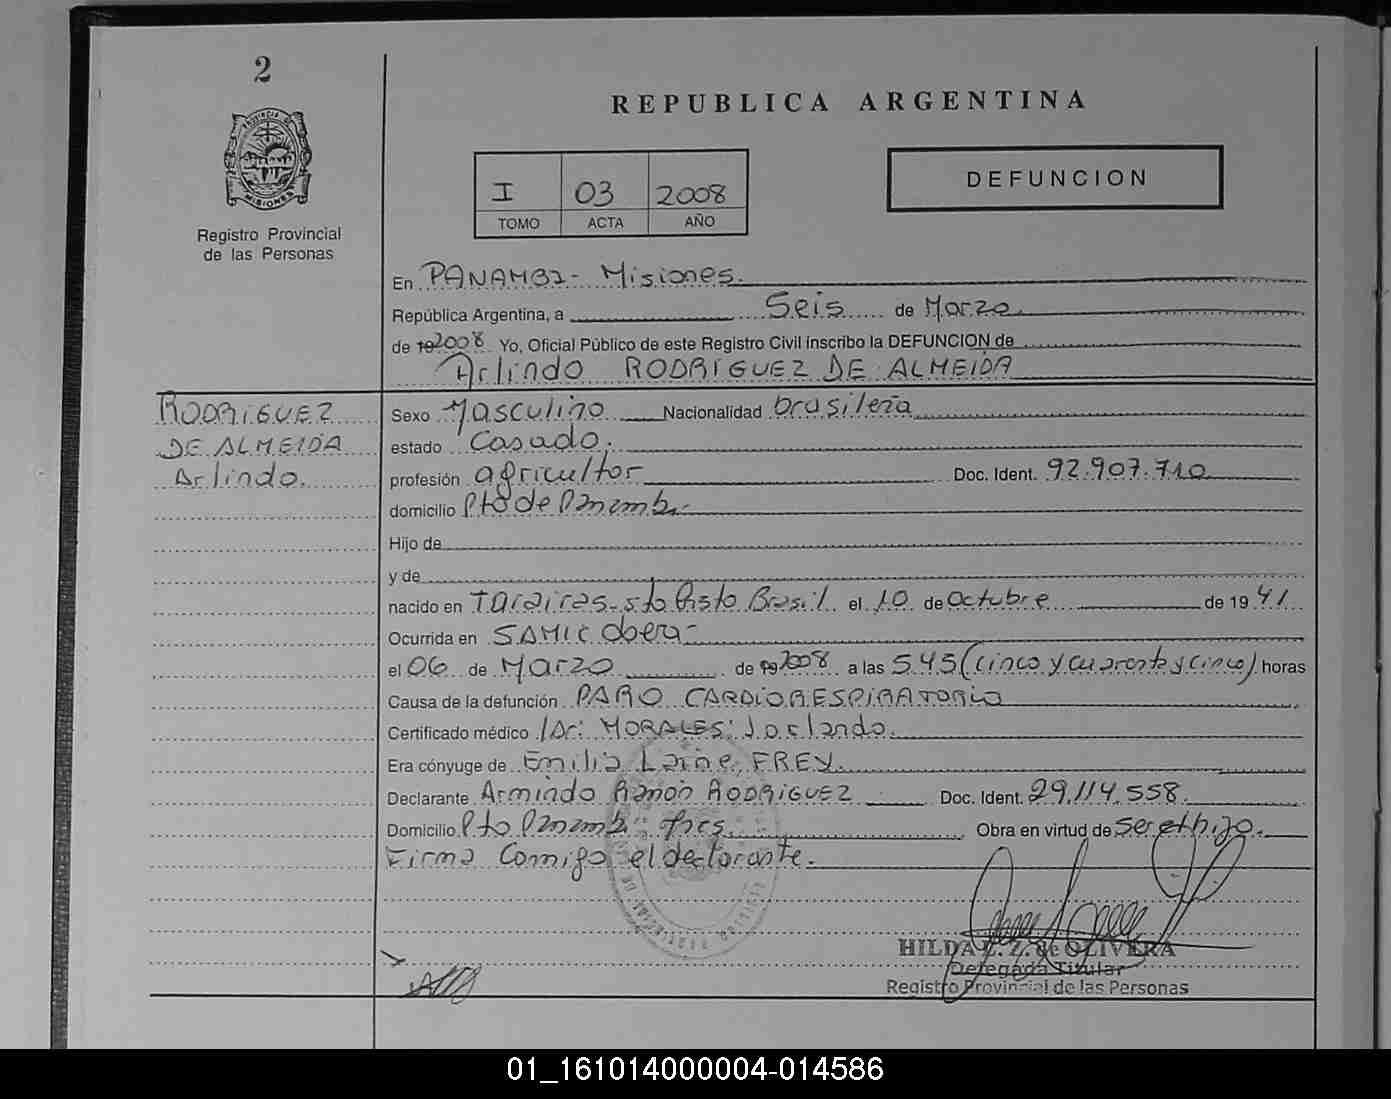 2
REPUBLICA ARGENTINA
PROVINCIA DE
MISIONES
Registro Provincial
de las Personas
I 03 2008
TOMO ACTA AÑO
DEFUNCION
En PANAMBI - Misiones.
República Argentina, a Seis de Marzo.
de 19 2008 Yo, Oficial Público de este Registro Civil inscribo la DEFUNCION de
Arlindo RODRIGUEZ DE ALMEIDA
RODRIGUEZ
DE ALMEIDA
Arlindo.
Sexo Masculino Nacionalidad brasileña
estado Casado.
profesión agricultor Doc. Ident. 92.907.710
domicilio Pto de Panambi.-
Hijo de
y de
nacido en Brasil el 10 de Octubre de 19 41
Ocurrida en SAMIC Obera-
el 06 de Marzo de 19 2008 a las 5.45 (cinco y cuarenta y cinco) horas
Causa de la defunción PARO CARDIORESPIRATORIO
Certificado médico Dr: MORALES: Jorlando.
Era cónyuge de Emilia Laine FREY.
Declarante Armindo Ramón RODRIGUEZ Doc. Ident. 29.114.558.
Domicilio Pto Panambi Obra en virtud de ser el hijo.
Firma Comigo el declarante.
HILDA Z. de OLIVERA
Delegada Titular
Registro Provincial de las Personas
01_161014000004-014586